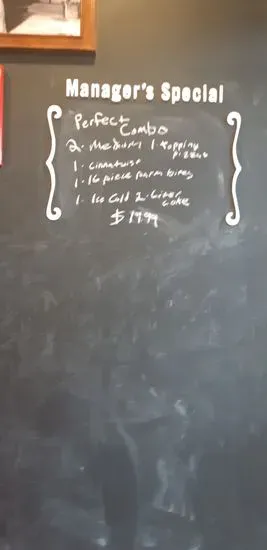 Manager's Special
Perfect
Combo
2- Medium 1-topping
Pizzas
1- Cinnatwist
1- 16 piece parm bites
1- Ice Cold 2-Liter
Coke
$19.99